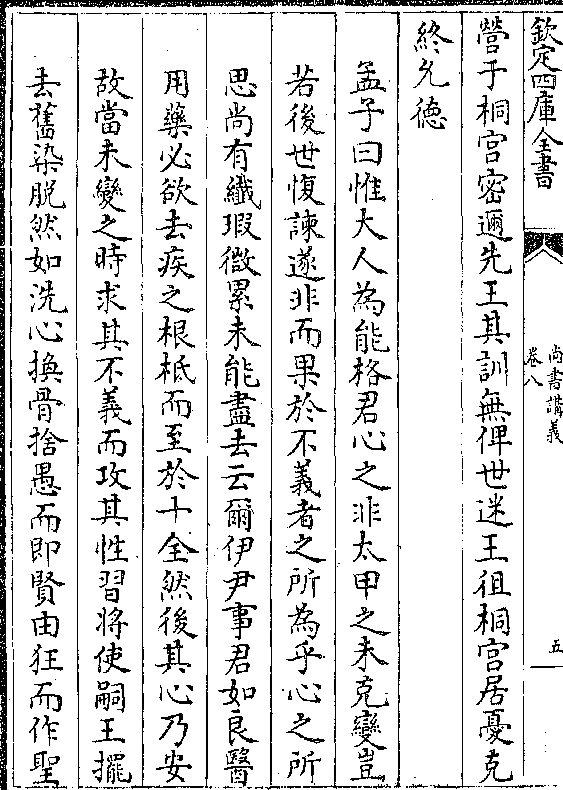 欽定四庫全書
尚書講義
卷八
五
營于桐宫密邇先王其訓無俾世迷王徂桐宫居憂克
終允德
孟子曰惟大人為能格君心之非太甲之未克變豈
若後世愎諫遂非而果於不義者之所為乎心之所
思尚有纖瑕微累未能盡去云爾伊尹事君如良醫
用藥必欲去疾之根柢而至於十全然後其心乃安
故當未變之時求其不義而攻其性習將使嗣王擺
去舊染脱然如洗心換骨捨愚而即賢由狂而作聖